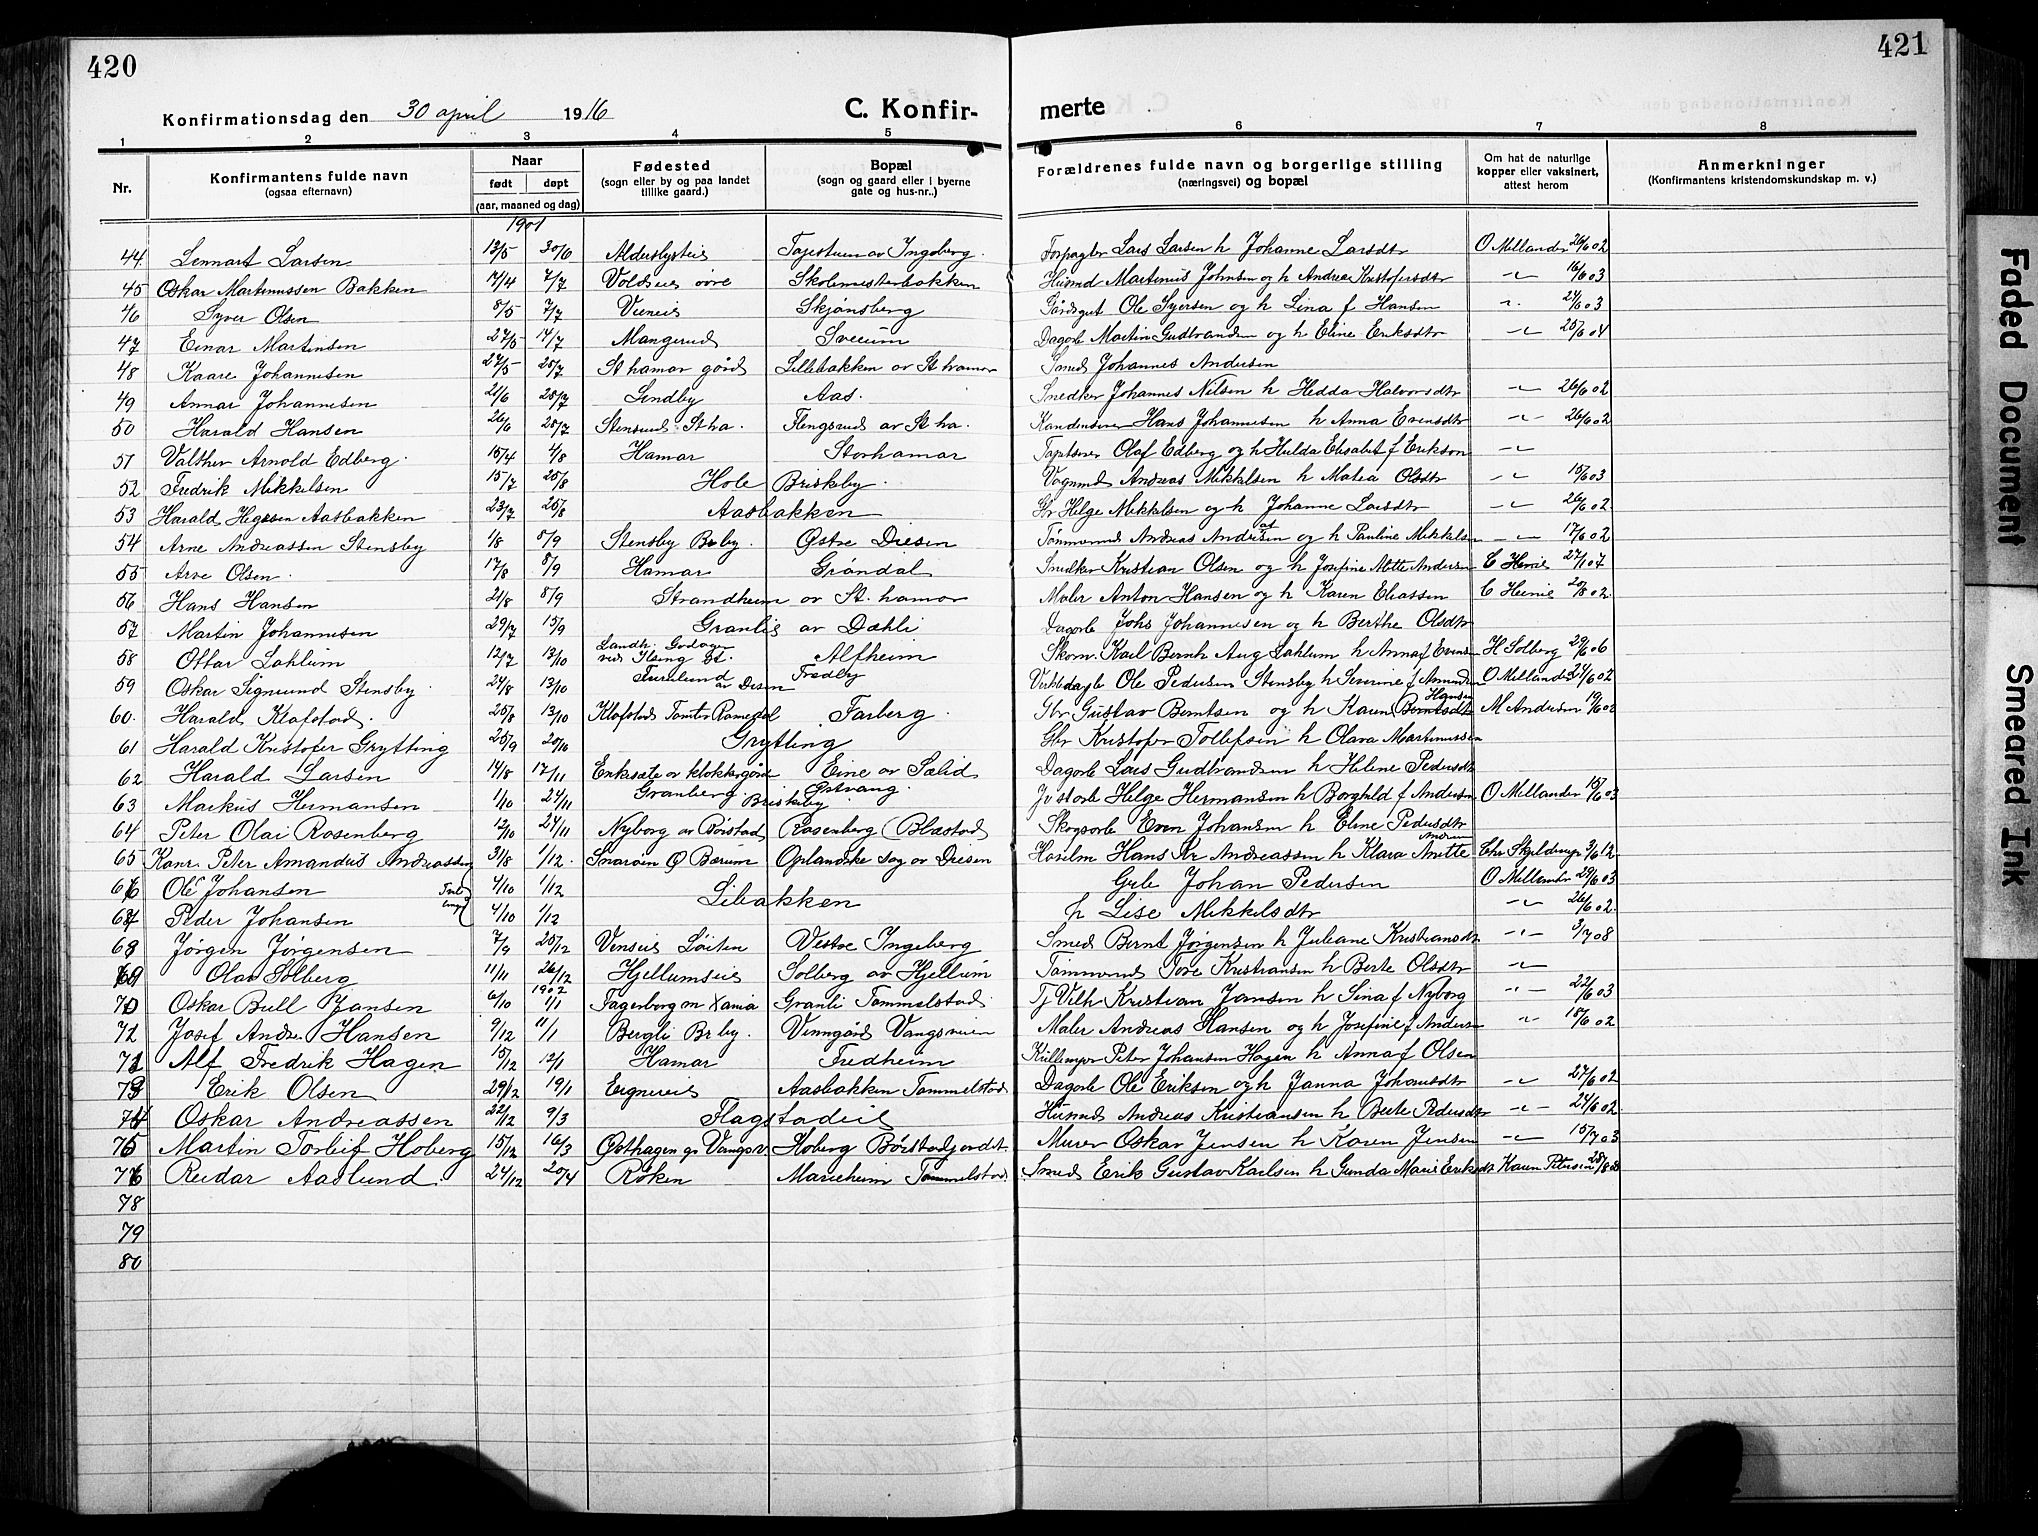 420
421
Konfirmationsdag den 30 april 1916
C. Konfir-
merte
1 2 3 4 5 6 7 8
Nr.
Konfirmantens fulde navn
(ogsaa efternavn)
Naar
født døpt
(aar, maaned og dag)
Fødested
(sogn eller by og paa landet
tillike gaard.)
Bopæl
(sogn og gaard eller i byerne
gate og hus-nr..)
Forældrenes fulde navn og borgerlige stilling
(næringsvei) og bopæl
Om hat de naturlige
kopper eller vaksinert,
attest herom
Anmerkninger
(Konfirmantens kristendomskundskap m. v.)
1901
44. Lennart Larsen 13/5 30/6 Lars Larsen h Johanne Larsdtr O Mellander 26/6 02
45 Oskar Martinussen Bakken 17/4 7/7 Voldseie øvre Skolemesterbakken Husmd Martinus Johnsen og h Andrea Kristofersdtr 16/6 03
46 Syver Olsen 8/5 7/7 Skjønsberg Gårdsgut Ole Syersen og h Lina f Hansen 24/6 03
47 Einar Martinsen 27/5 14/7 Mangerud Sveeum Dagarb Martin Gudbrandsen og h Eline Eriksdtr 25/6 04
48 Kaare Johannesen 24/5 28/7 St hamar gård Lillebakken av St hamar Smed Johannes Andersen
49 Annar Johannesen 21/6 28/7 Lundby Aas. Snedker Johannes Nilsen h Hedda Halvorsdtr 26/6 02
50 Harald Hansen 26/6 28/7 Stensrud St ha. Flengsrud av St ha. Hans Johannesen h Anna Evensdtr 26/6 02
51 Valther Arnold Edberg. 15/4 4/8 Hamar Storhamar Tapetserer Olaf Edberg og h Hulda Elisabet f Erikson
52 Fredrik Mikkelsen 15/7 25/8 Hole Briskeby. Vognmd Andreas Mikkelsen h Matea Olsdtr 15/6 03
53 Harald Helgesen Aasbakken 23/7 25/8 Aasbakken Gbr Helge Mikkelsen og h Johanne Larsdtr 26/6 02
54 Arne Andreassen Stensby 1/8 8/9 Stensby Br.by. Østre Disen Tømmermd Andreas Andersen og h Pauline Mikkelsen 17/6 02
55 Arve Olsen. 17/8 8/9 Hamar Grøndal Snedker Kristian Olsen og h Josefine Mette Andersen C Heinie 27/1 04
56 Hans Hansen 21/8 8/9 Strandheim av St. hamar Maler Anton Hansen og h Karen Eliassen C Heinie 20/8 02.
57 Martin Johannesen 29/7 15/9 Granlie av Dæhli Dagarb Johs Johannesen og h Berthe Olsdtr
58 Ottar Lahlum 12/7 13/10 Alfheim Skom. Karl Bernh Aug Lahlum h Anna f Evensen H Solberg 29/6 06
59 Oskar Sigmund Stensby. 24/8 13/10 Furulund av Disen Fredby Ole Pedersen Stensby h Severine f Amundsen O Mellander 24/6 02
60. Harald Klafstad. 25/8 13/10 Klafstad Tomten Romedal Farberg. Gbr Gustav Berntsen og h Karen Hansen M Andersen 19/6 02
61 Harald Kristofer Grytting 25/9 20/10 Grytting Gbr Kristofer Tollefsen h Olava Martinussen
62 Harald Larsen 14/8 17/11 Eriksæte av klokkergård Eine av Sælid Dagarb Lars Gudbrandsen h Helene Pedersdtr
63 Markus Hermansen 1/10 24/11 Granberg. Briskeby Østvang. Helge Hermansen h Borghild f Andersen O Mellander 15/6 03
64 Peter Olai Rosenberg 12/10 24/11 Nyborg av Børstad Rosenberg (Blæstad Skogsarb Even Johansen h Eline Pedersdtr
65 Peter Amandus Andreassen 31/8 1/12. Snarøen Ø Bærum Oplandske sag av Disen Høvelm Hans Kr Andreassen h Klara Anette Andersen Chr Skjeldrup 3/6 12
66 Ole Johansen 4/10 1/12 Libakken Gbr Johan Pedersen O Mellander 29/6 03
67 Peder Johansen 4/10 1/12 h Lise Mikkelsdtr 26/6 02.
68 Jørgen Jørgensen 7/9 25/12 Venseie Løiten Vestre Ingeberg Smed Bernt Jørgensen h Juliane Kristiansdtr 3/7 08
69 Olav Solberg 11/11 26/12 Hjellumseie Solberg av Hjellum Tømmermd Tore Kristiansen h Berte Olsdtr
1902
70 Oskar Bull Jansen 6/10 1/1 Fagerborg m Xania Granli Tommelstad. Tj Vilh Kristian Jansen h Lina f Nyborg 22/6 03
71 Josef Andre Hansen 9/12 11/1 Bergli Br.by. Vinngård Vangsveien Maler Andreas Hansen og h Josefine f Andersen 18/6 02
72 Alf Fredrik Hagen 15/12 12/1 Hamar Fredheim Peter Johansen Hagen h Anna f Olsen
73 Erik Olsen 29/12 19/1 Aasbakken Tommelstad Dagarb Ole Eriksen og h Janna Johansdtr 27/6 02
74 Oskar Andreassen 22/12 9/3 Flagstadeie Husmd Andreas Kristiansen h Berte Pedersdtr 24/6 02.
75 Martin Torleif Hoberg 15/12 16/3 Østhagen Vangsv. Hoberg Børstadjordet Murer Oskar Jensen h Karen Jensen 15/7 03
76 Reidar Aaslund. 24/12 20/4 Røken Marieheim Tommelstad Smed Erik Gustav Karlsen h Gunda Marie Eriksdt Karen Petersen
78
79
80
Faded Document
Smeared Ink